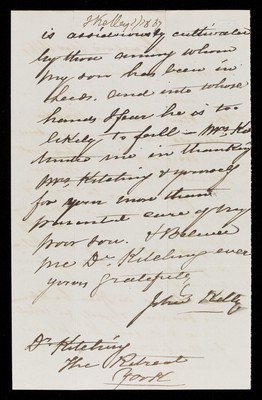 J Kelly 2/1837
is assiduously cultivated
by those among whom
my son has been in
Leeds. and into whose
hands I fear he is too
likely to fall – Mrs. Kelly
unites me in thanking
Mrs. Kitching & yourself
for your more than
parental care of my
poor son. & Believe
me Dr Kitching ever
yours gratefully
John Kelly
Dr Kitching
The Retreat
York